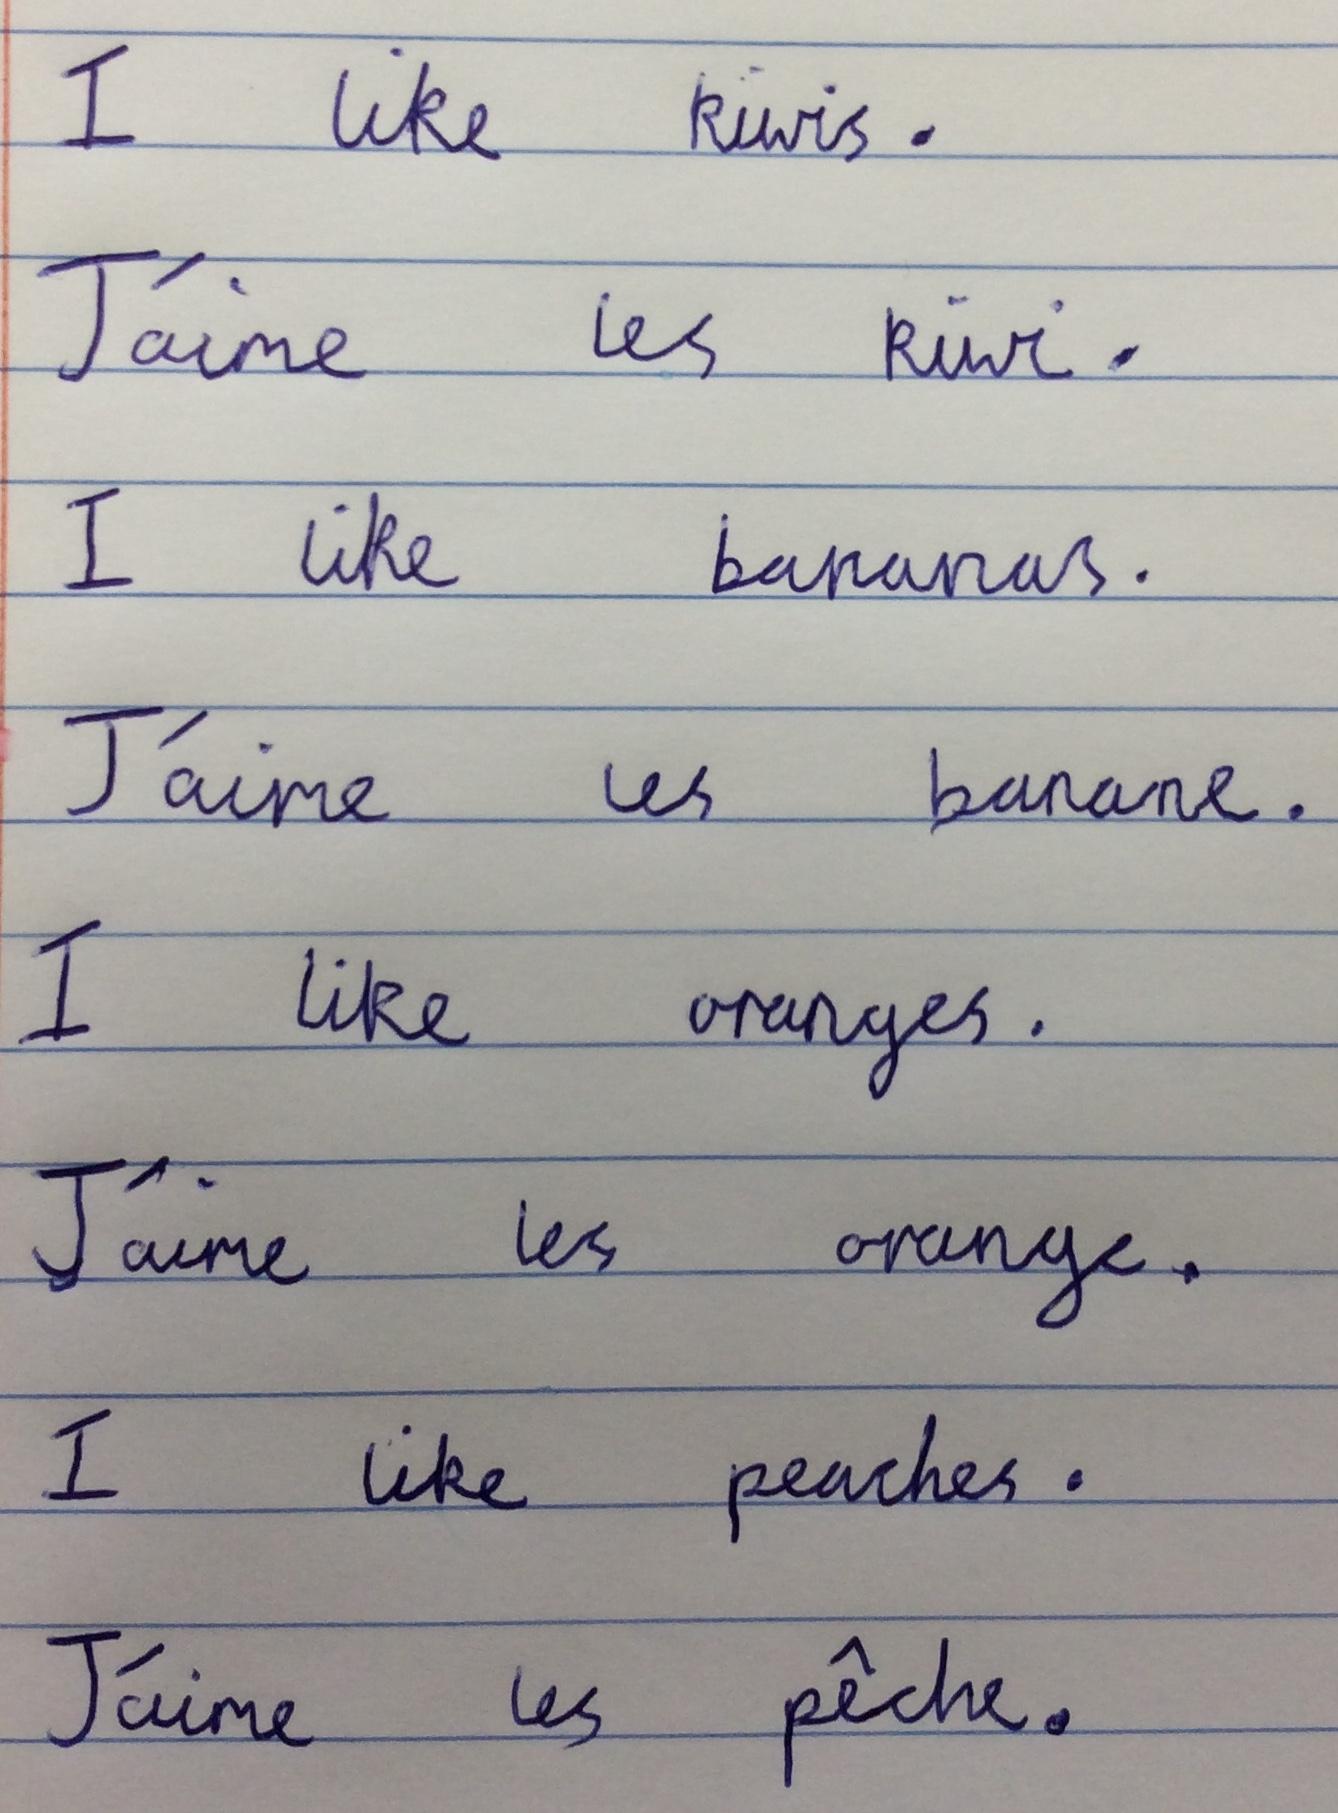 I like kiwis.
J'aime les kiwi.
I like bananas.
J'aime les banane.
I like oranges.
J'aime les orange.
I like peaches.
J'aime les pêche.